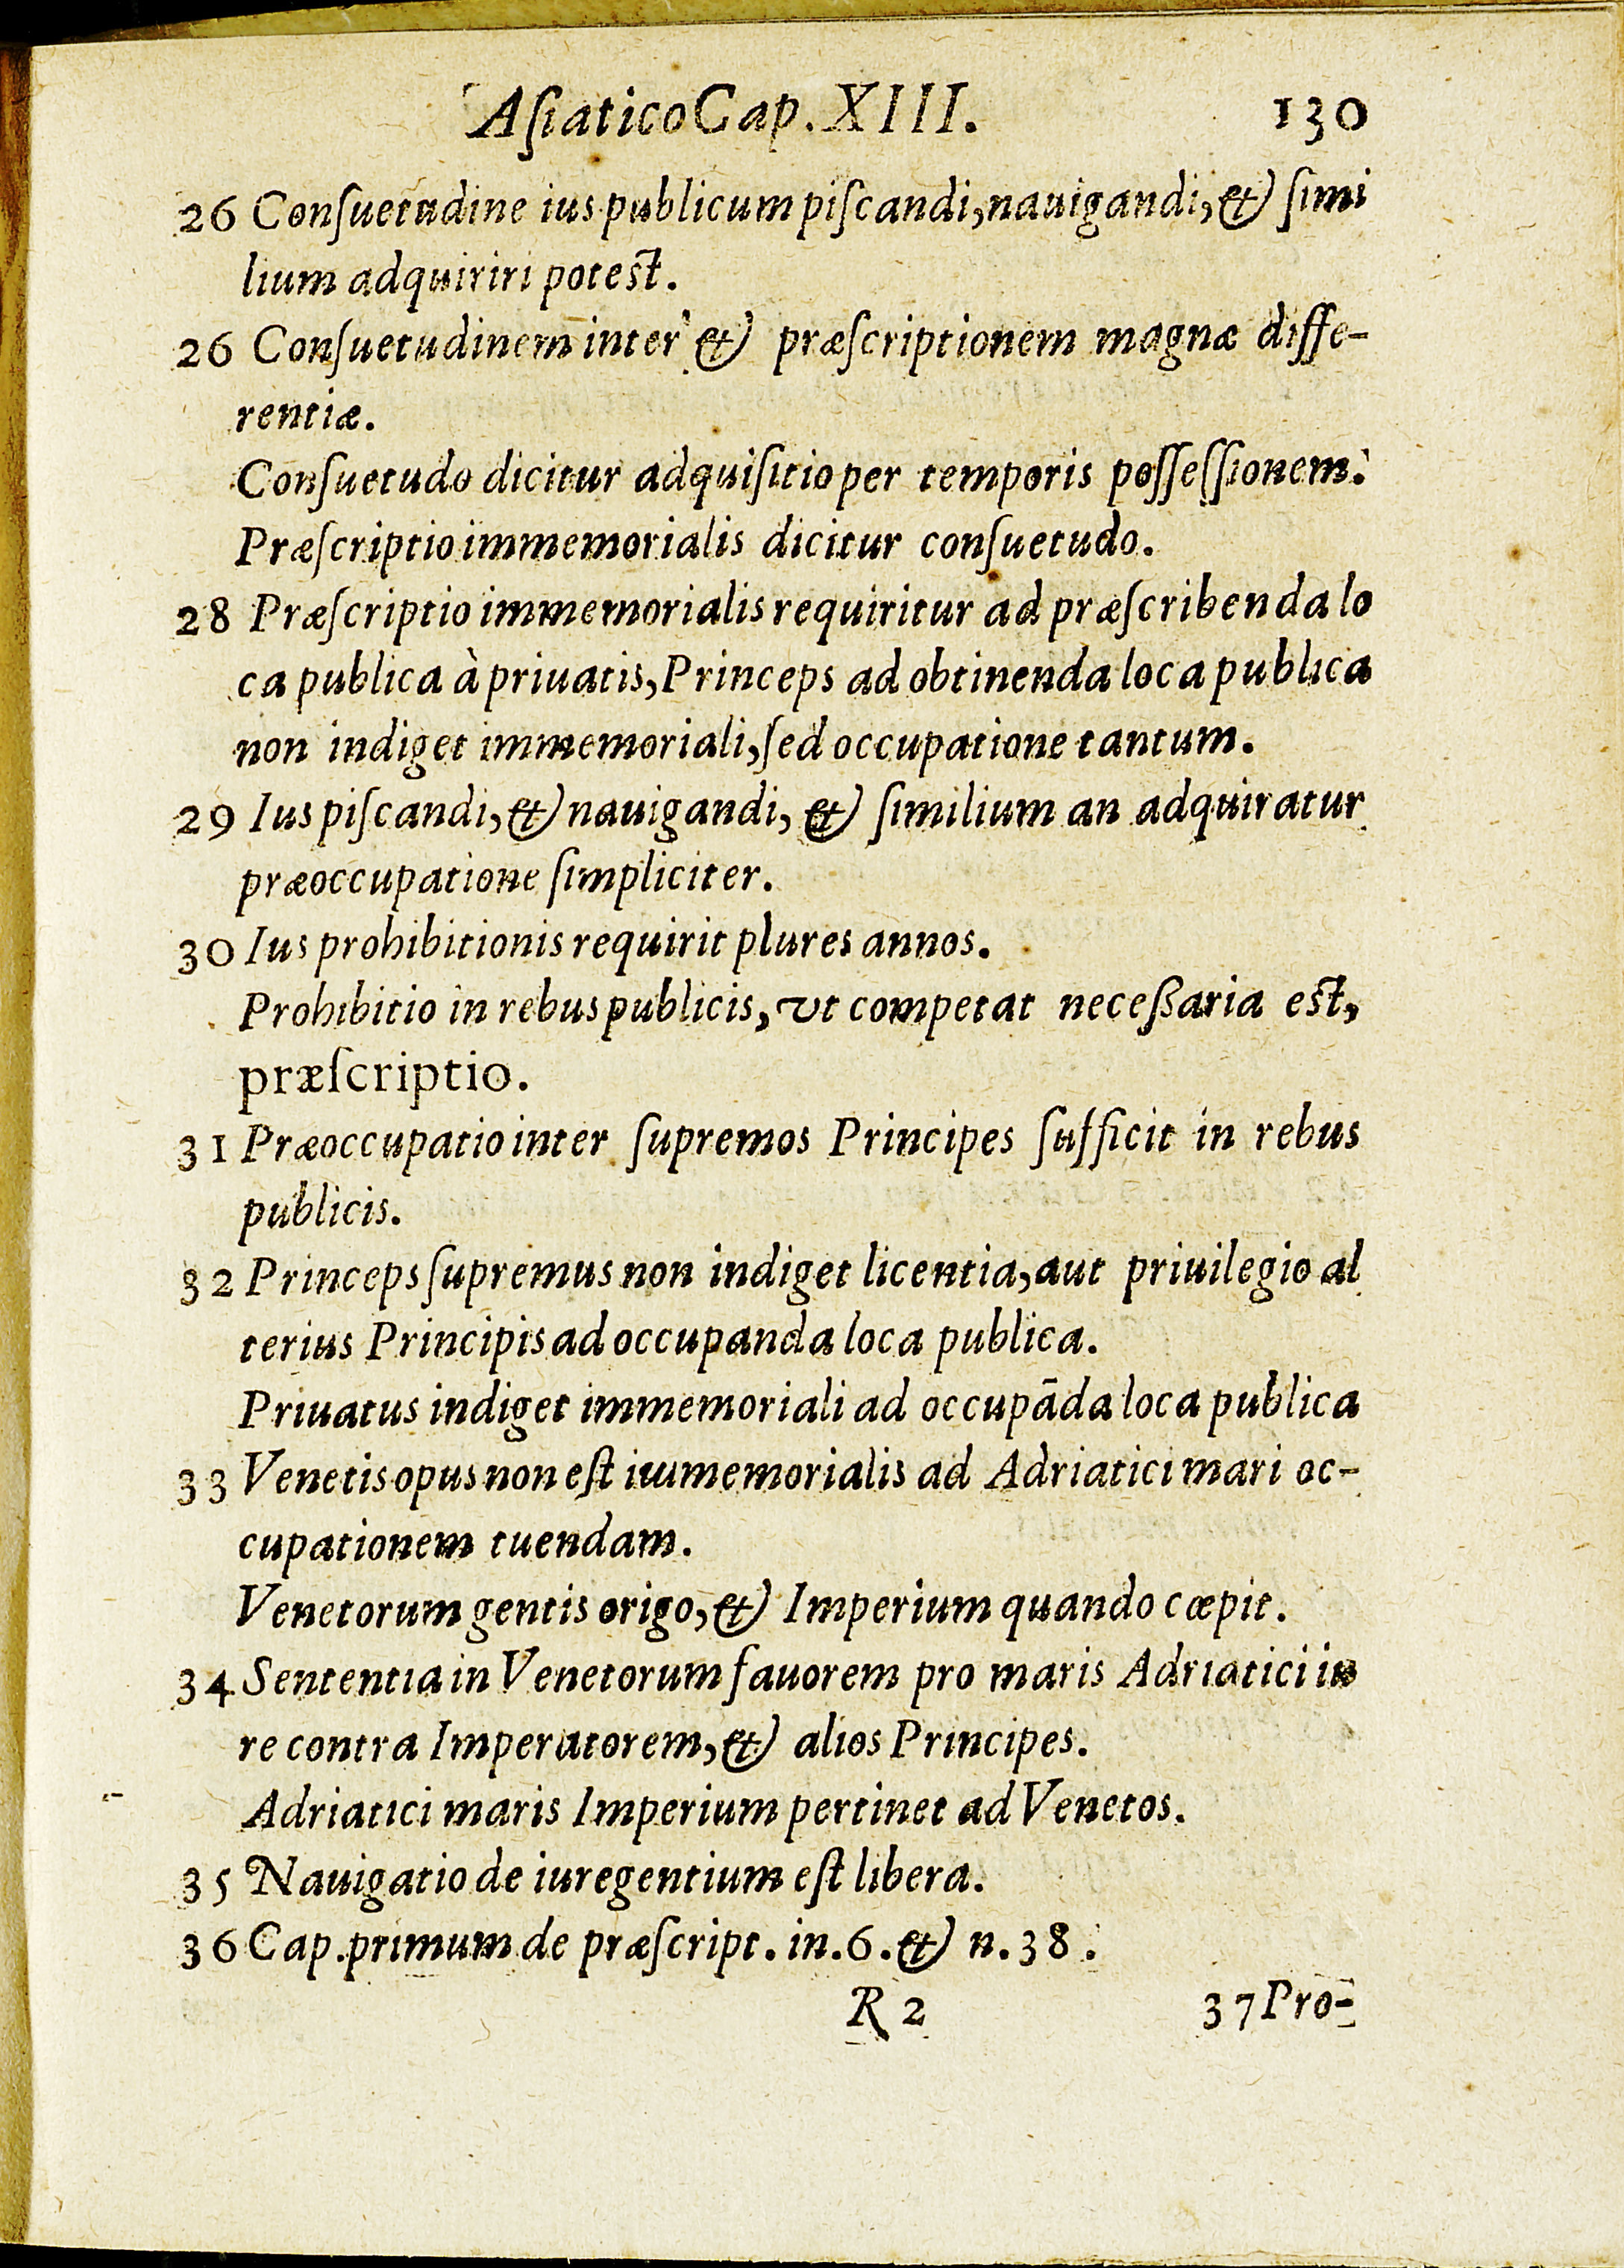 Aſiatico Cap. XIII. 130
26 Conſuetudine ius publicum piſcandi, nauigandi, & ſimi
lium adquiriri poteſt.
26 Conſuetudinem inter & præſcriptionem magnæ diffe-
rentiæ.
Conſuetudo dicitur adquiſitio per temporis poſſeſſionem.
Præſcriptio immemorialis dicitur conſuetudo.
28 Præſcriptio immemorialis requiritur ad præſcribenda lo
ca publica à priuatis, Princeps ad obtinenda loca publica
non indiget immemoriali, ſed occupatione tantum.
29 Ius piſcandi, & nauigandi, & ſimilium an adquiratur
præoccupatione ſimpliciter.
30 Ius prohibitionis requirit plures annos.
Prohibitio in rebus publicis, vt competat neceßaria eſt,
præſcriptio.
31 Præoccupatio inter ſupremos Principes ſufficit in rebus
publicis.
32 Princeps ſupremus non indiget licentia, aut priuilegio al
terius Principis ad occupanda loca publica.
Priuatus indiget immemoriali ad occupāda loca publica
33 Venetis opus non eſt iumemorialis ad Adriatici mari oc-
cupationem tuendam.
Venetorum gentis origo, & Imperium quando cœpit.
34 Sententia in Venetorum fauorem pro maris Adriatici iu
re contra Imperatorem, & alios Principes.
Adriatici maris Imperium pertinet ad Venetos.
35 Nauigatio de iure gentium eſt libera.
36 Cap. primum de præſcript. in. 6. & n. 38.
R 2 37 Pro-